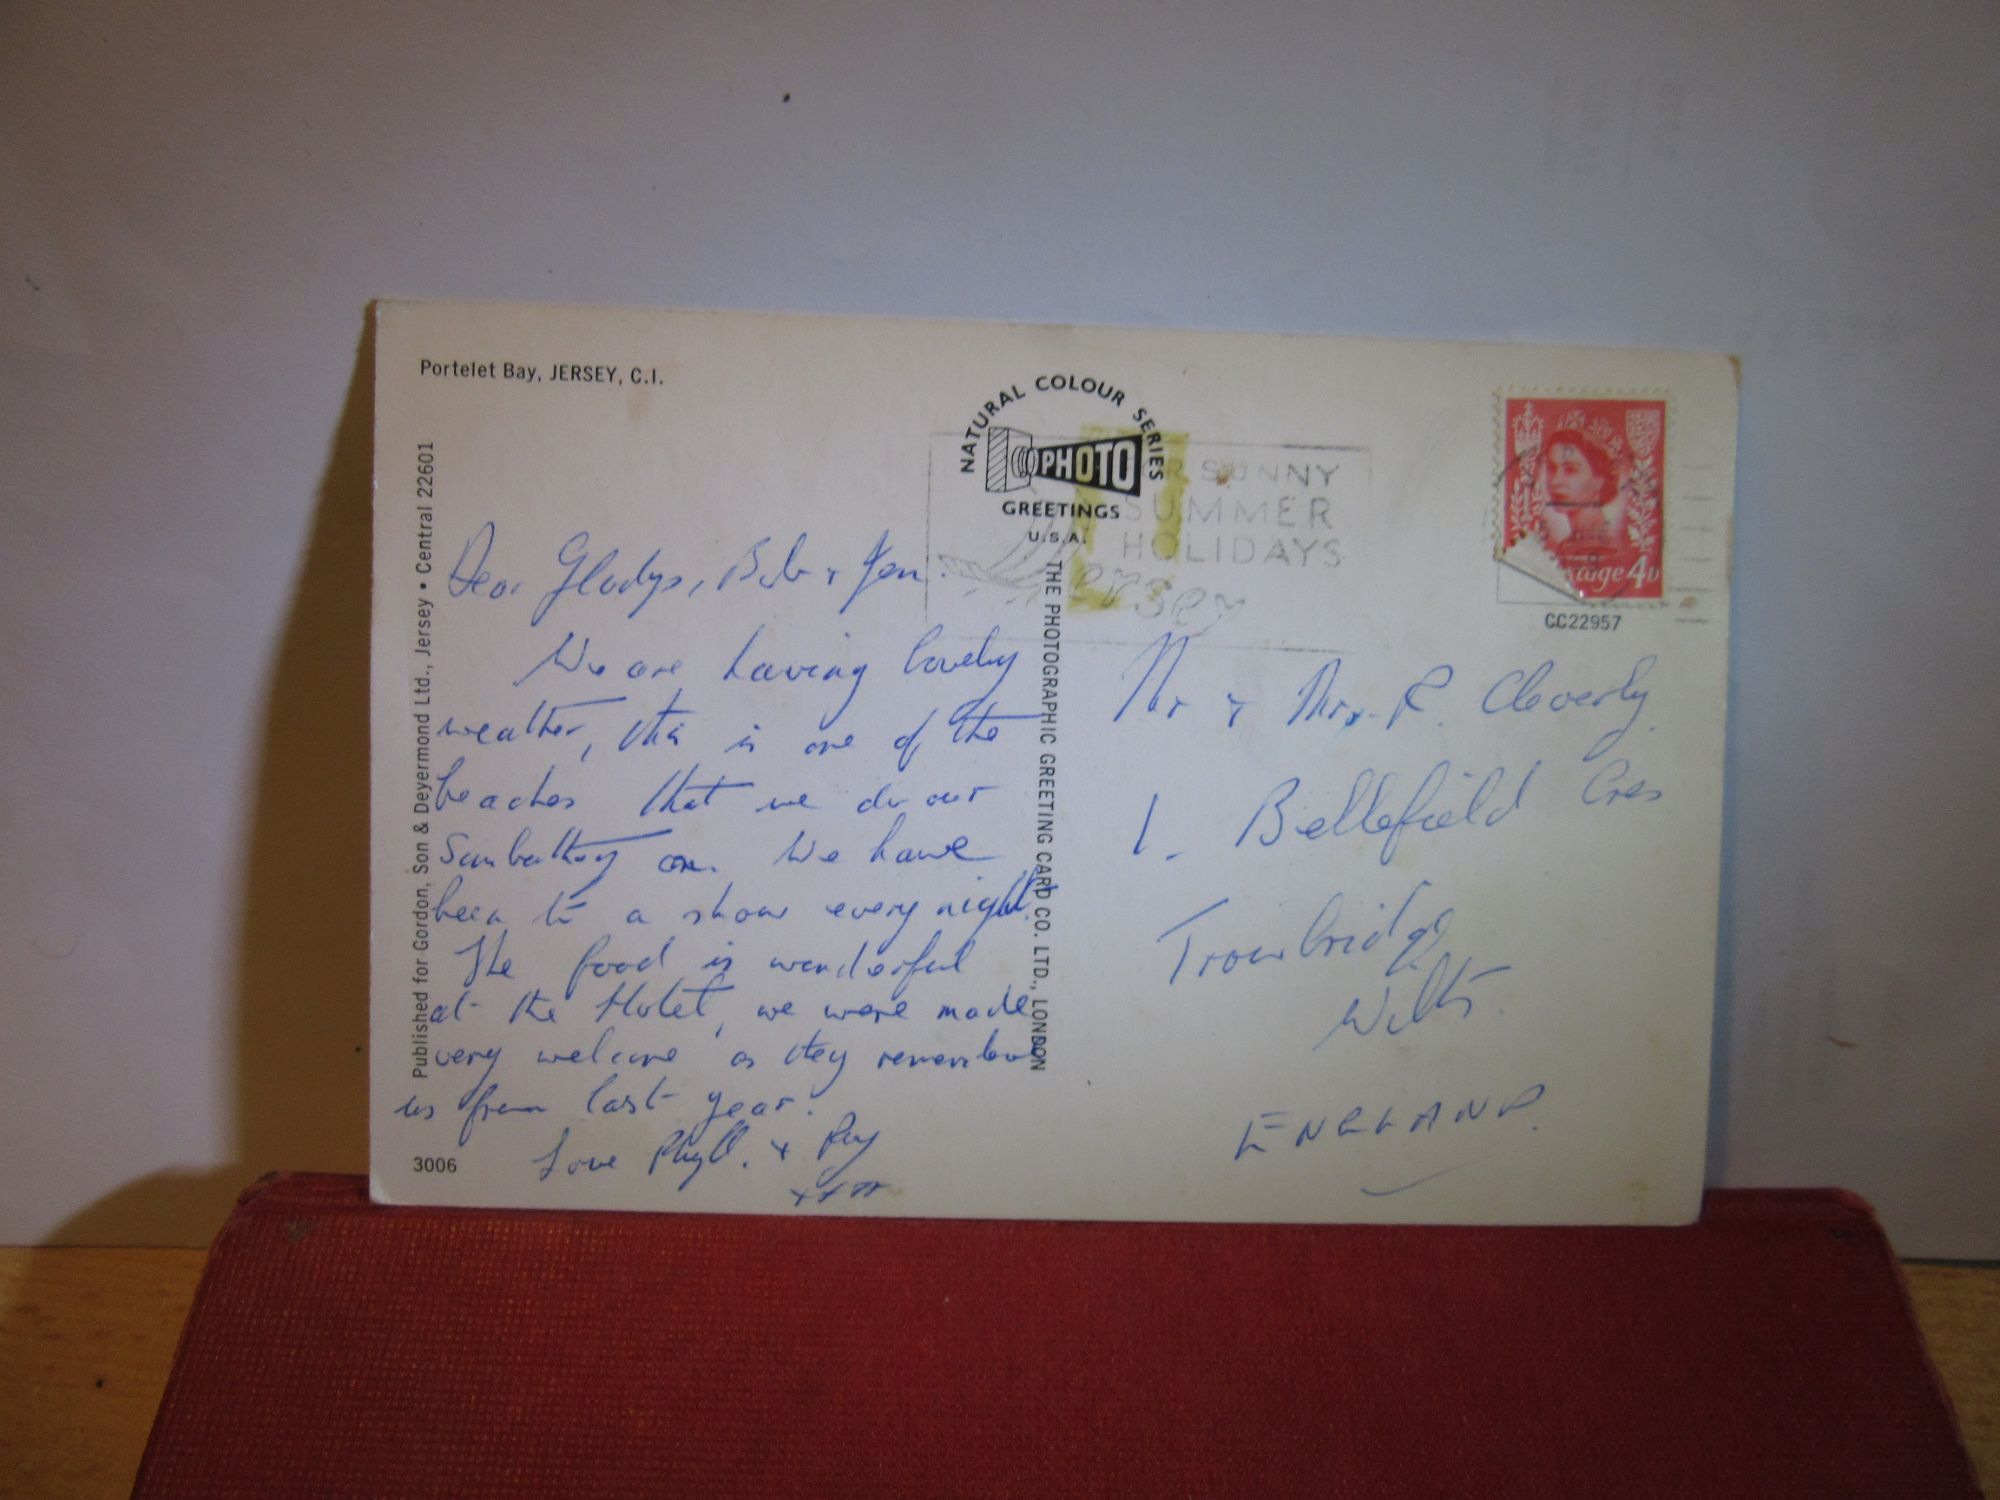 Portelet Bay, JERSEY, C.I.
Published for Gordon, Son & Deyermond Ltd., Jersey • Central 22601
3006
NATURAL COLOUR SERIES
PHOTO
GREETINGS
U.S.A.
THE PHOTOGRAPHIC GREETING CARD CO. LTD., LONDON
SUNNY
SUMMER
HOLIDAYS
ersey
4D
CC22957
Dear Gladys, Bob + Jen.
We are having lovely
weather, this is one of the
beaches that we do our
Sunbathing on. We have
been to a show every night.
The food is wonderful
at the Hotel, we were made
very welcome as they remember
us from last year.
Love Phyll. + Roy
Mr + Mrs. R. Cleverly
1. Bellefield Cres
Trowbridge
Wilts.
ENGLAND.